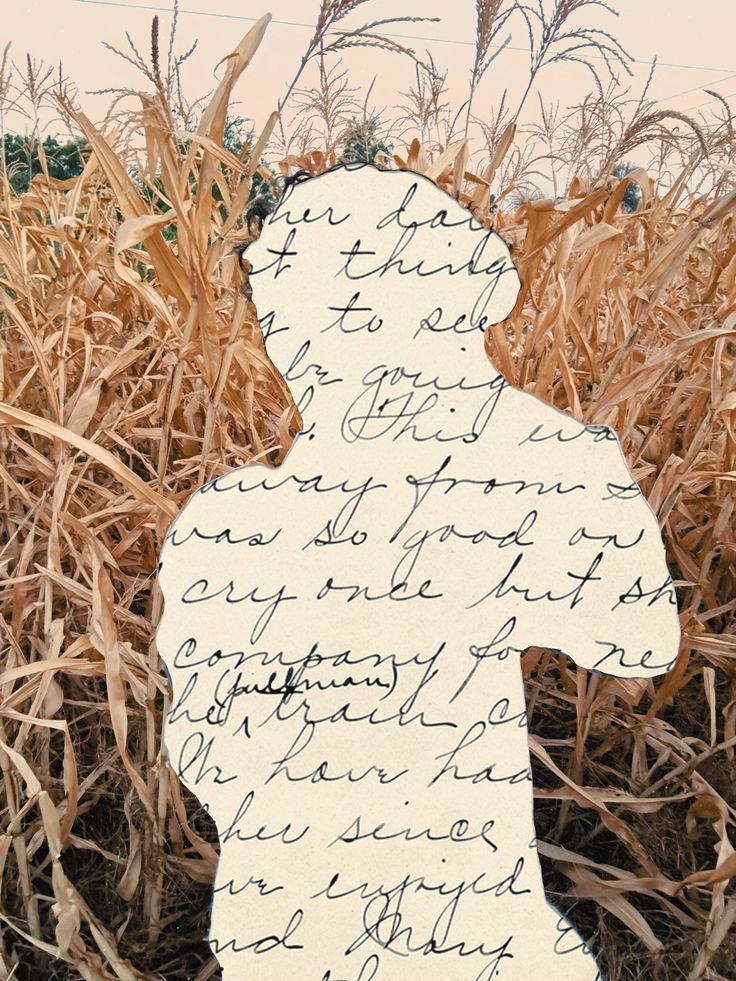 her da
t thing
g to see
be going
. This wa
away from
was so good on
cry once but sh
company for ne
(pullman)
he ^ train c
We have had
her since
ve enjoyed
nd Mary E